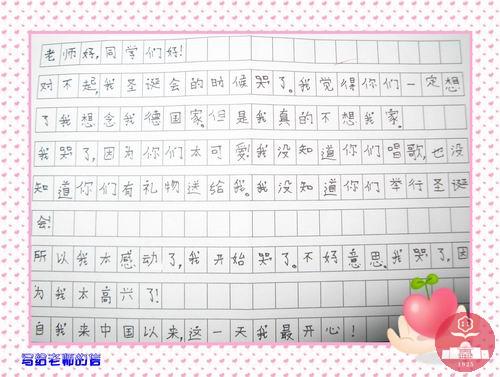 老师好,同学们好!
对不起,我圣诞会的时候哭了。我觉得你们一定想
了我想念我德国家。但是我真的不想我家。
我哭了,因为你们太可爱!我没知道你们唱歌,也没
知道你们有礼物送给我。我没知道你们举行圣诞
会!
所以我太感动了,我开始哭了。不好意思。我哭了,因
为我太高兴了!
自我来中国以来,这一天我最开心!
写给老师的信
1925